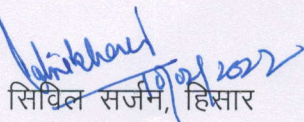 10/02/2022
सिविल सर्जन, हिसार